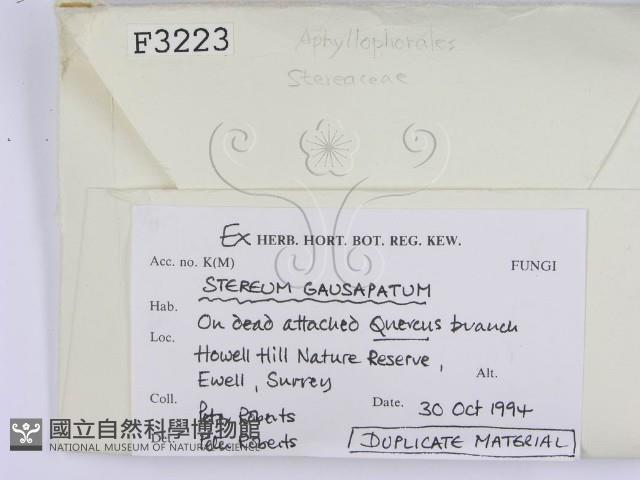 F3223
Aphyllophorales
Stereaceae
Ex HERB. HORT. BOT. REG. KEW.
Acc. no. K(M)
FUNGI
STEREUM GAUSAPATUM
Hab. On dead attached Quercus branch
Loc. Howell Hill Nature Reserve,
Ewell, Surrey
Alt.
Coll. Peter Roberts
Date. 30 Oct 1994
Det. Peter Roberts
DUPLICATE MATERIAL
國立自然科學博物館
NATIONAL MUSEUM OF NATURAL SCIENCE